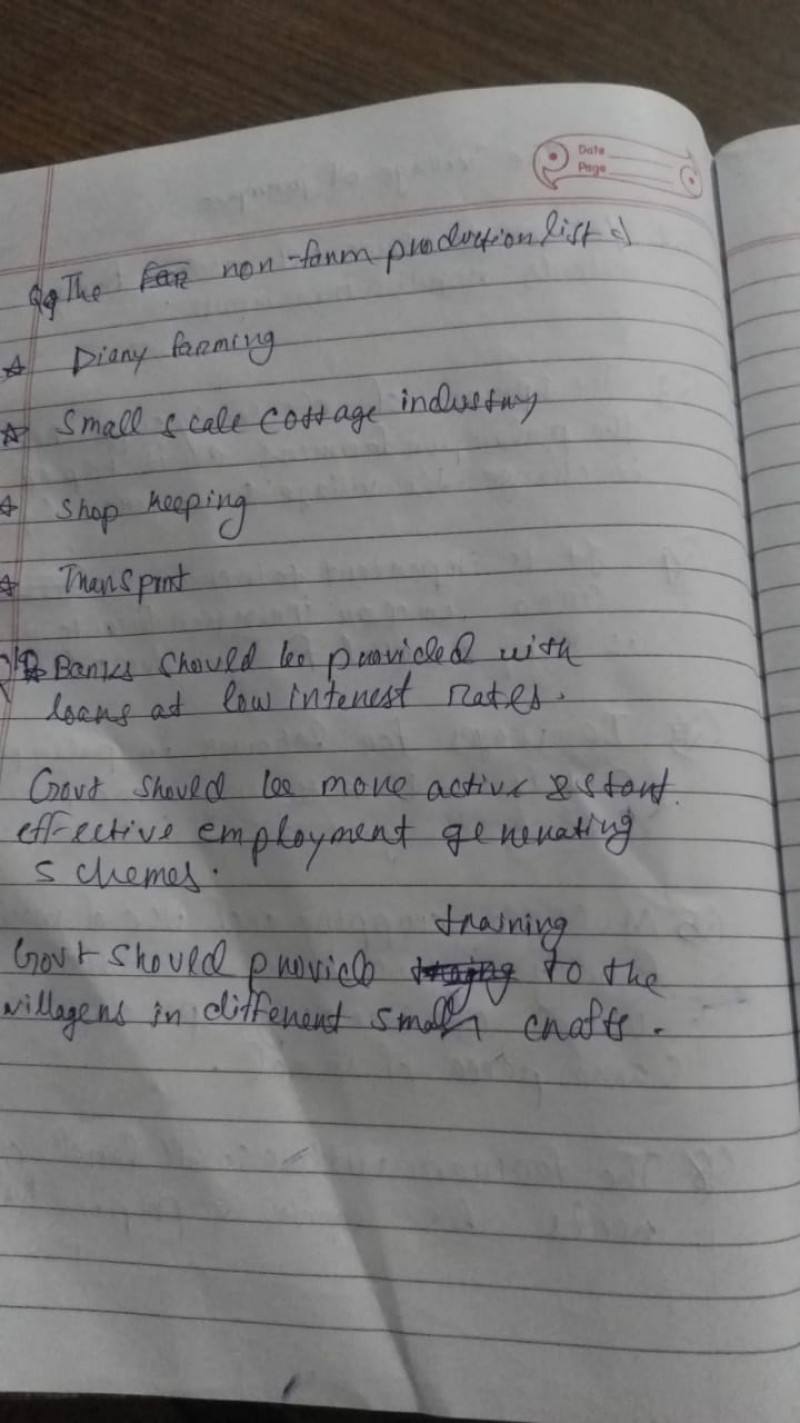 Date
Page
Q9 The non-farm production list :)
Diary farming
Small scale Cottage industry
Shop keeping
Transport
Banks should be provided with
loans at low interest rates.
Govt should be more active & start
effective employment generating
schemes.
training
Govt should provide to the
villagers in different small crafts.